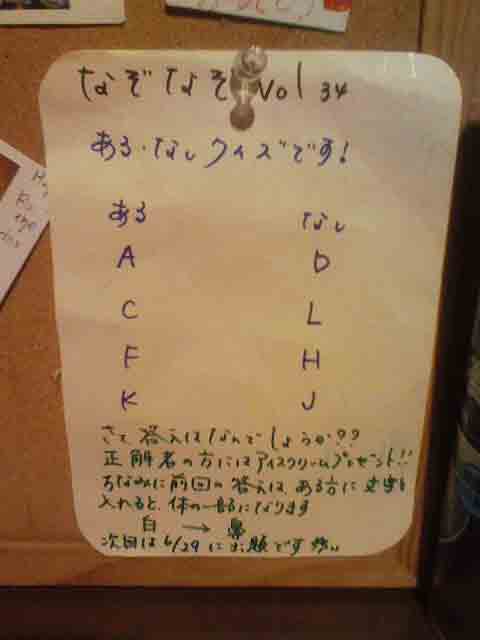 なぞなぞ Vol 34
ある・なしクイズです!
ある なし
A D
C L
F H
K J
さて 答えはなんでしょうか??
正解者の方にはアイスクリームプレゼント!!
ちなみに前回の答えは、ある方に
入れると、体の一部になります
白 → 鼻
次回は6/29に出題です